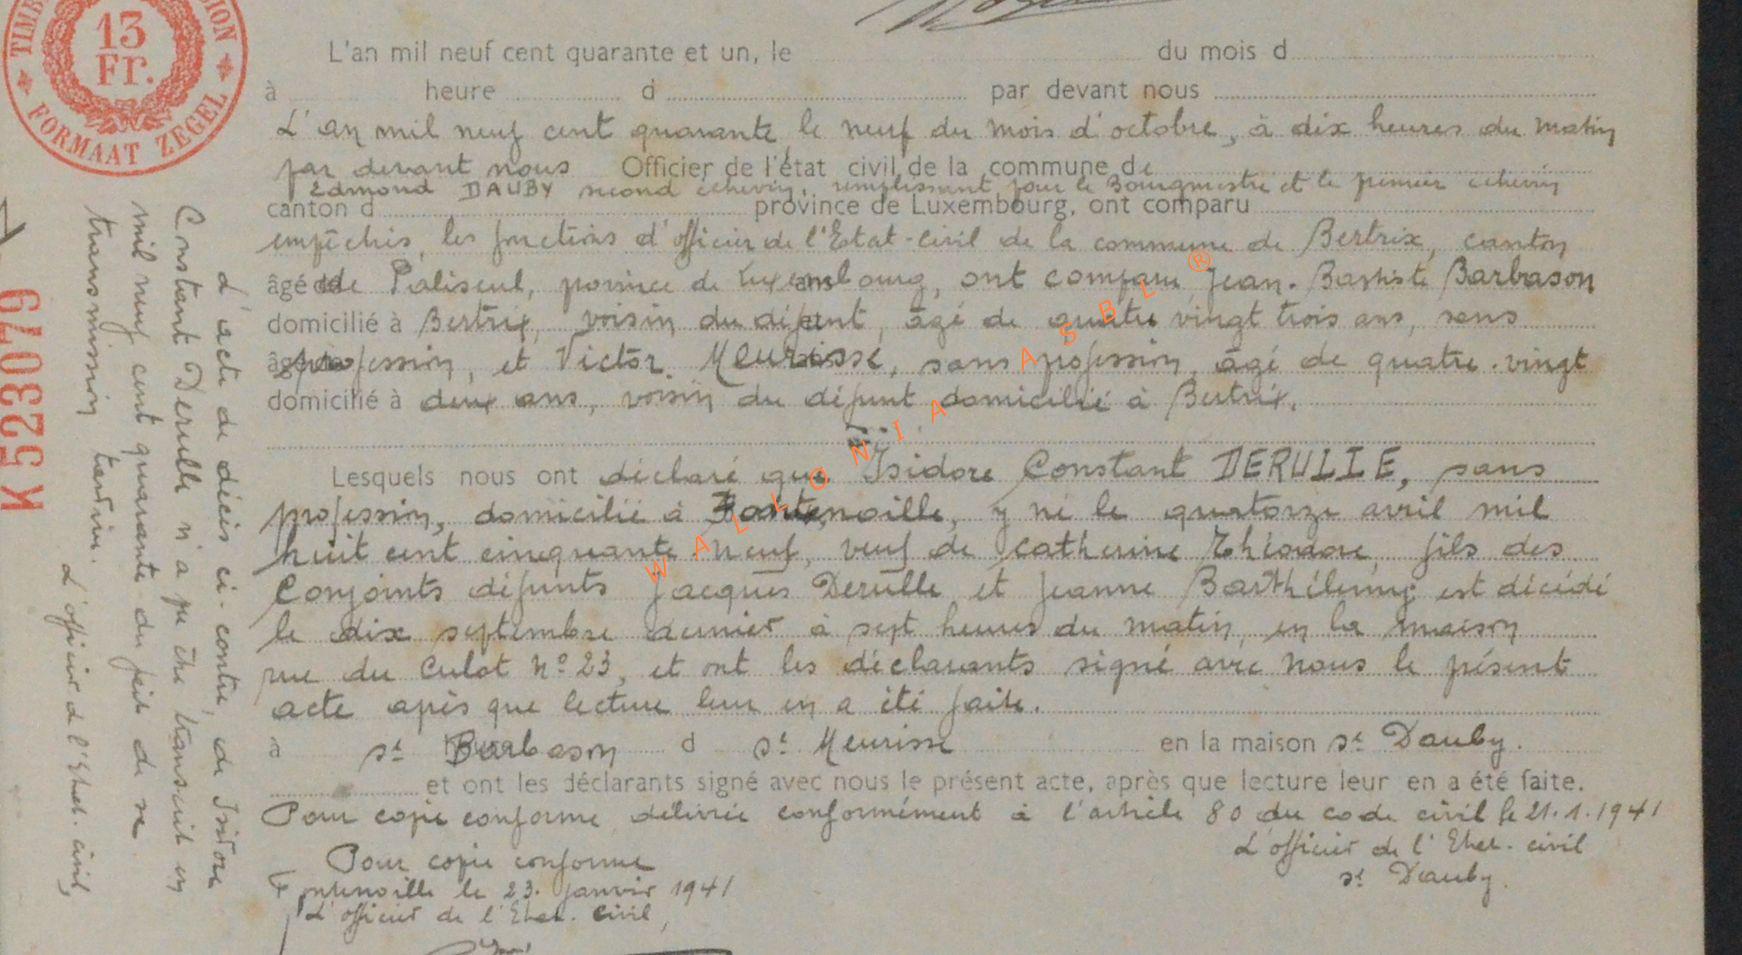 13
Fr.
FORMAAT ZEGEL
K 523079
L'acte de décès ci-contre, de Isidore
Constant Derulle n'a pu être transcrit en
mil neuf cent quarante du fait de sa
transmission tardive.
L'officier d l'Etat. civil,
L'an mil neuf cent quarante et un, le du mois d
à heure d par devant nous
L'an mil neuf cent quarante, le neuf du mois d'octobre, à dix heures du matin
par devant nous Officier de l'état civil de la commune de
Edmond DAUBY second échevin, remplissant pour le Bourgmestre et le premier échevin
canton d province de Luxembourg, ont comparu
empêchés, les fonctions d'officier de l'Etat-civil de la commune de Bertrix, canton
âgé de de Paliseul, province de Luxembourg, ont comparu Jean-Baptiste Barbason
domicilié à Bertrix, voisin du défunt, âgé de quatre vingt trois ans, sans
profession, et Victor Meurisse, sans profession, âgé de quatre-vingt
domicilié à deux ans, voisin du défunt domicilié à Bertrix.
Lesquels nous ont déclaré que Isidore Constant DERULLE, sans
profession, domicilié à Fontenoille, y né le quatorze avril mil
huit cent cinquante neuf, veuf de Catherine Théodore, fils des
Conjoints défunts Jacques Derulle et Jeanne Barthélemy est décédé
le dix septembre dernier à sept heures du matin, en la maison
rue du Culot No 23, et ont les déclarants signé avec nous le présent
acte après que lecture leur en a été faite.
à st Barbason d st Meurisse en la maison st Dauby.
et ont les déclarants signé avec nous le présent acte, après que lecture leur en a été faite.
Pour copie conforme délivrée conformément à l'article 80 du code civil le 21.1.1941
L'officier de l'Etat. civil
st Dauby.
Pour copie conforme
Fontenoille le 23. janvier 1941
L'officier de l'Etat. civil,
WALLONIA ASBL ®